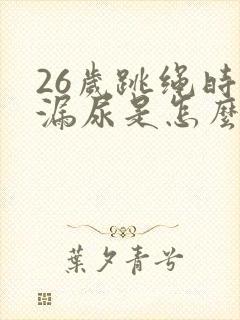 26歲跳绳時
漏尿是怎麽
葉夕青兮